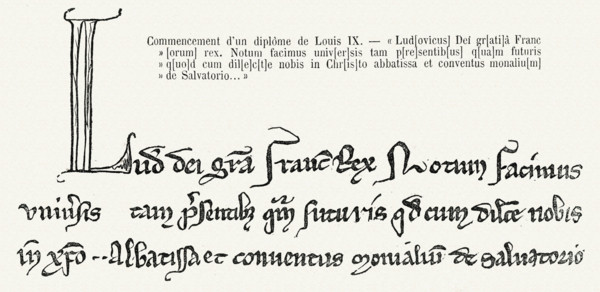 Commencement d'un diplôme de Louis IX. — « Lud[ovicus] Deî gr[ati]â Franc
» [orum] rex. Notum facimus univ[er]sis tam p[re]sentib[us] q[ua]m futuris
» q[uo]d cum dil[e]c[t]e nobis in Chr[is]to abbatissa et conventus monaliu[m]
» de Salvatorio... »
Lud̄ dei gr̄a Franc̄ Rex Notum facimus
univ̄sis tam p̄sentib; q̄m futuris qd̄ cum dil̄ce nobis
in xp̄o -- Abbatissa et conventus monialiū de salvatorio